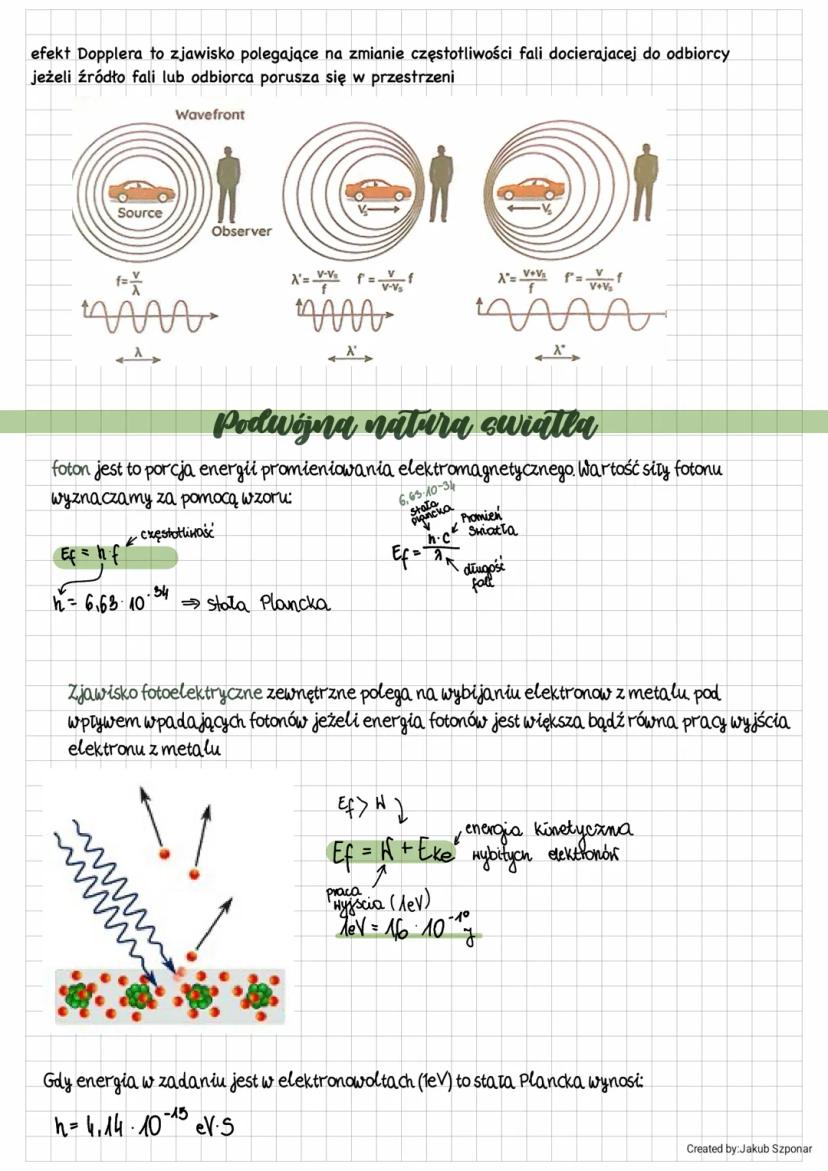 efekt Dopplera to zjawisko polegające na zmianie częstotliwości fali docierajacej do odbiorcy
jeżeli źródło fali lub odbiorca porusza się w przestrzeni
Wavefront
Source
Observer
Vs
Vs
f=V/λ
λ'=V-Vs/f f'=V/V-Vs f
λ"=V+Vs/f f"=V/V+Vs f
λ
λ'
λ"
Podwójna natura swiatła
foton jest to porcja energii promieniowania elektromagnetycznego. Wartość siły fotonu
wyznaczamy za pomocą wzoru:
Ef = h·f
częstotliwość
h = 6,63·10⁻³⁴ ⇒ stała Plancka
6,63·10⁻³⁴
stała
plancka
Promień
swiatła
Ef = h·c/λ
długość
fali
Zjawisko fotoelektryczne zewnętrzne polega na wybijaniu elektronow z metalu pod
wpływem wpadających fotonów jeżeli energia fotonów jest większa bądź równa pracy wyjścia
elektronu z metalu
Ef > W
Ef = W + Eke
energia kinetyczna
wybitych elektronów
praca
wyjścia (1eV)
1eV = 1,6·10⁻¹⁹ J
Gdy energia w zadaniu jest w elektronowoltach (1eV) to stała Plancka wynosi:
h = 4,14·10⁻¹⁵ eV·s
Created by:Jakub Szponar